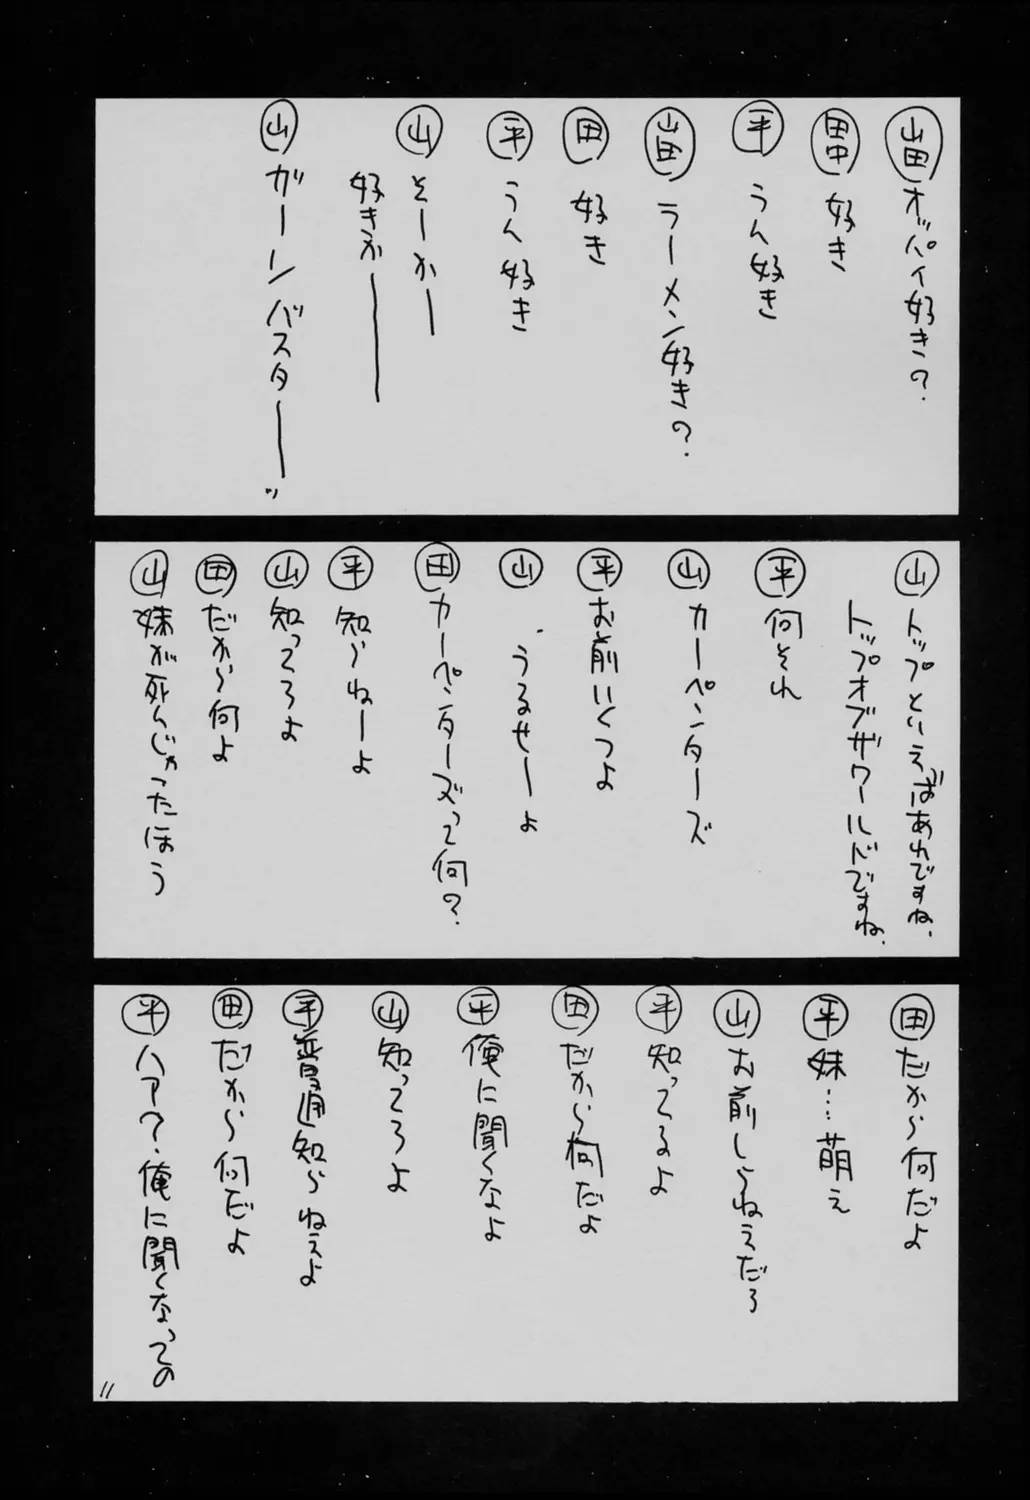 山田 オッパイ好きの?
田中 好き
平 うん好き
山田 ラーメン好きの?
田 好き
平 うん好き
山 そーかー
好きかー
山 ガーンバスターーッ
山 トップといえばあれですね、
トップオブザワールドですね、
平 何それ
山 カーペンターズ
平 お前いくつよ
山 うるせーよ
田 カーペンターズって何?
平 知らねーよ
山 知ってろよ
田 だから何よ
山 妹が死んじゃったほう
田 だから何だよ
平 妹…萌え
山 お前しらねえだろ
平 知ってるよ
田 だから何だよ
平 俺に聞くなよ
山 知ってろよ
平 普通知らねえよ
田 だから何だよ
平 ハァ?俺に聞くなっての
11